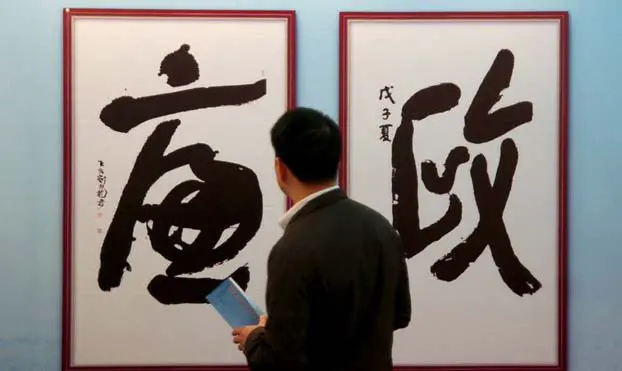 廉政
戊子夏